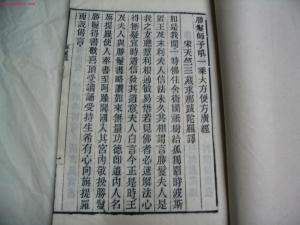 勝鬘師子吼一乘大方便方廣經
宋天竺三藏求那跋陀羅譯
如是我聞一時佛住舍衛國祇樹給孤獨園時波斯
匿王及末利夫人信法未久共相謂言勝鬘夫人是
我之女聰慧利根通敏易悟若見佛者必速解法心
得無疑宜時遣信發其道意夫人白言今正是時王
及夫人與勝鬘書略讚如來無量功德即遣內人名
旃提羅使人奉書至阿踰闍國入其宮內敬授勝鬘
勝鬘得書歡喜頂受讀誦受持生希有心向旃提羅
而說偈言